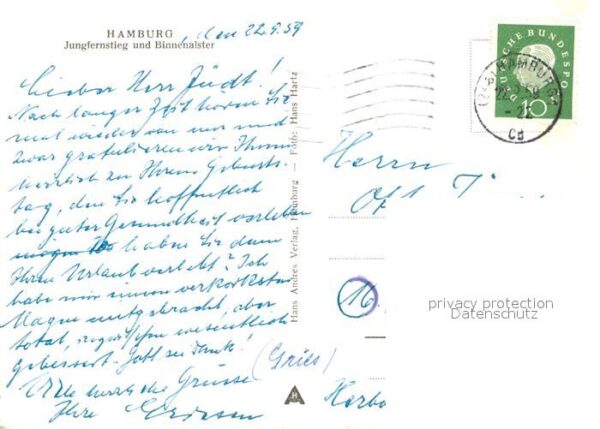 HAMBURG
Jungfernstieg und Binnenalster
, den 22.9.59
Lieber Herr Jüdt!
Nach langer Zeit hören Sie
mal wieder von mir und
zwar gratulieren wir Ihnen
herzlich zu Ihrem Geburts-
tag, den Sie hoffentlich
bei guter Gesundheit verleben
haben Sie denn
Ihren Urlaub verlebt? Ich
habe mir einen verkorksten
Magen mitgebracht, aber
total, jetzt wesentlich
gebessert. Gott sei Dank!
Viele herzliche Grüsse (Gries)
Ihre
Hans Andres Verlag, Hamburg — Foto: Hans Hartz
A H
DEUTSCHE BUNDESPOST
10
(24a) HAMBURG
22.9.59
CB
Herrn
16
privacy protection
Datenschutz